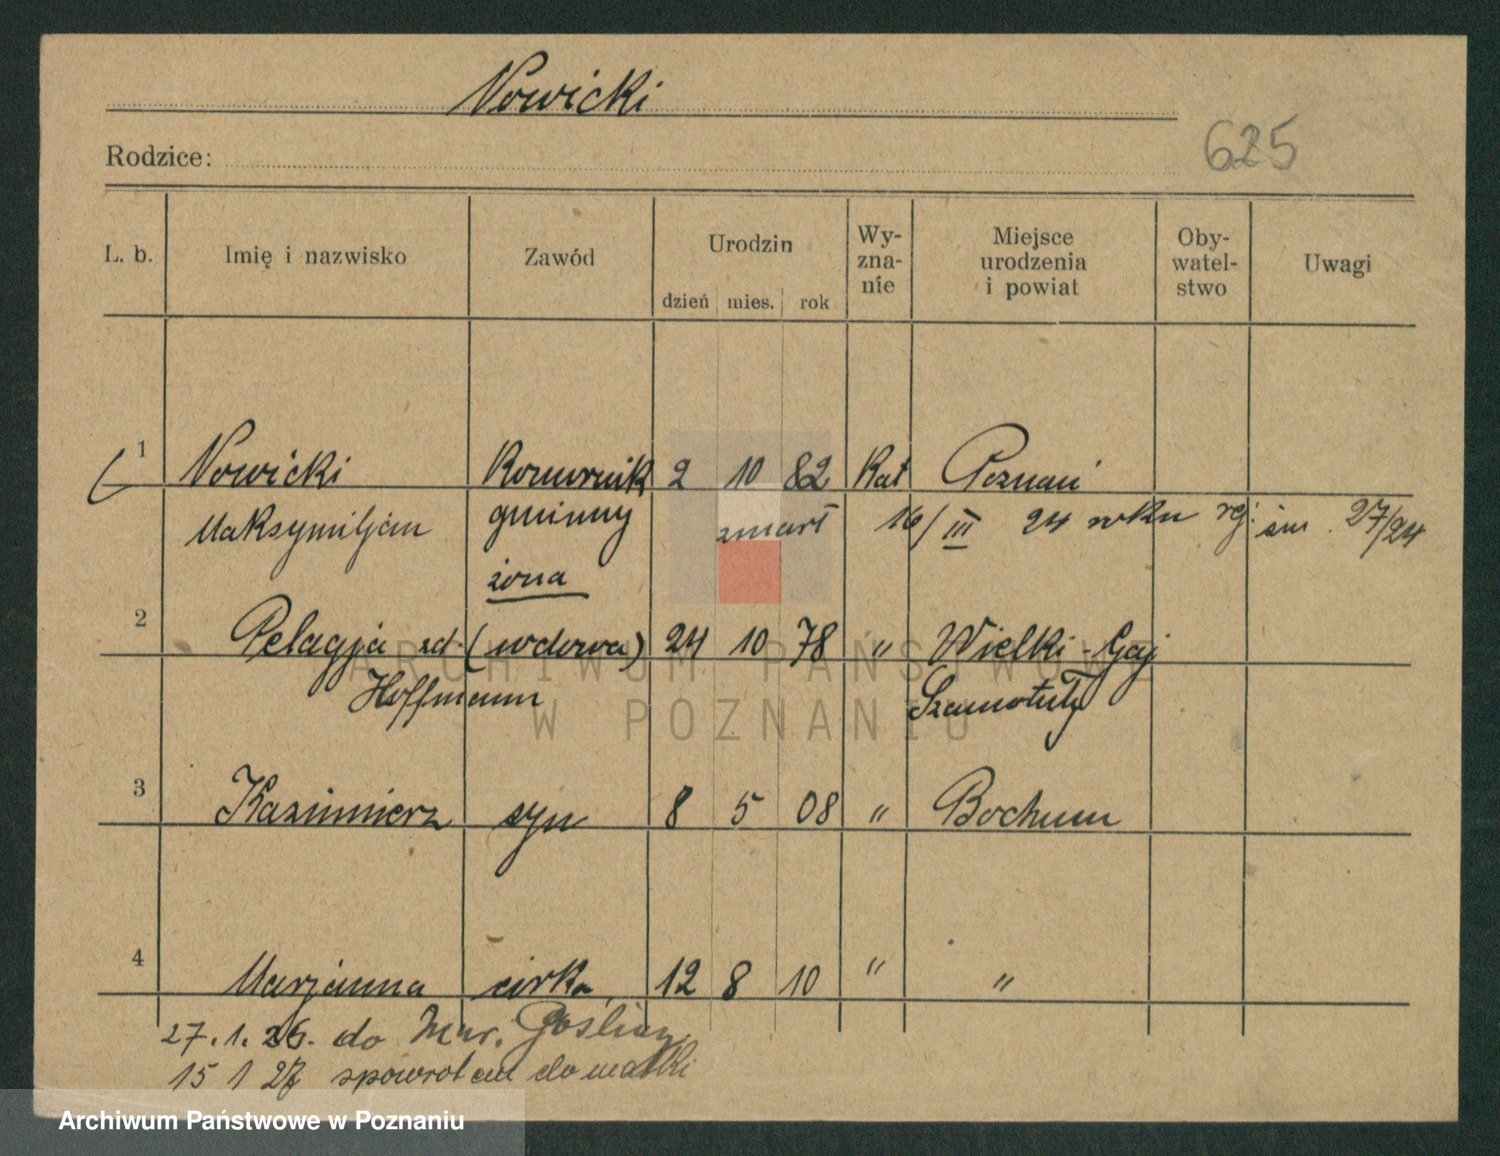 Nowicki
625
Rodzice:
L. b. Imię i nazwisko Zawód Urodzin dzień mies. rok Wy-zna-nie Miejsce urodzenia i powiat Oby-watel-stwo Uwagi
1 Nowicki Komornik 2 10 82 Kat Poznań
Maksymiljan gminny zmarł 16/III 24 roku rej. śm. 27/24
żona
2 Pelagja zd. (wdowa) 24 10 78 " Wielki-Gaj
Hoffmann Szamotuły
3 Kazimierz syn 8 5 08 " Bochum
4 Marjanna córka 12 8 10 " "
27.1.26. do Mur. Gośliny
15 1 27 spowrotem do matki
ARCHIWUM PAŃSTWOWE
W POZNANIU
Archiwum Państwowe w Poznaniu